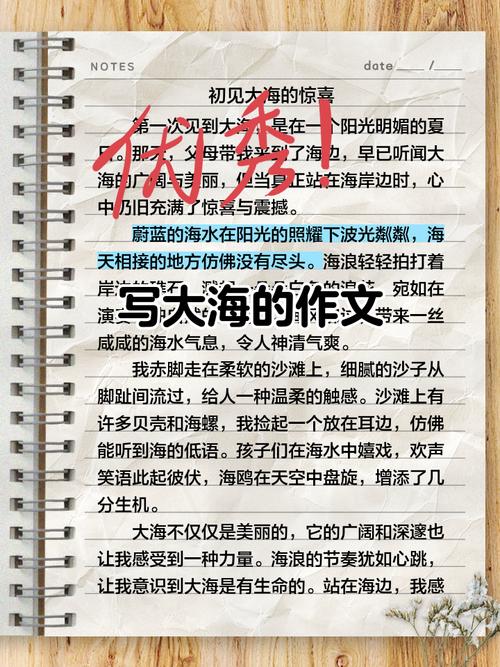 NOTES
date ___ /___
初见大海的惊喜
第一次见到大海,是在一个阳光明媚的夏
日。那天,父母带我来到了海边,早已听闻大
海的广阔与美丽,但当真正站在海岸边时,心
中仍旧充满了惊喜与震撼。
优秀!
蔚蓝的海水在阳光的照耀下波光粼粼,海
天相接的地方仿佛没有尽头。海浪轻轻拍打着
岸边的礁石,宛如在
写大海的作文
演奏 带来一丝
咸咸的海水气息,令人神清气爽。
我赤脚走在柔软的沙滩上,细腻的沙子从
脚趾间流过,给人一种温柔的触感。沙滩上有
许多贝壳和海螺,我捡起一个放在耳边,仿佛
能听到海的低语。孩子们在海水中嬉戏,欢声
笑语此起彼伏,海鸥在天空中盘旋,增添了几
分生机。
大海不仅仅是美丽的,它的广阔和深邃也
让我感受到一种力量。海浪的节奏犹如心跳,
让我意识到大海是有生命的。站在海边,我感